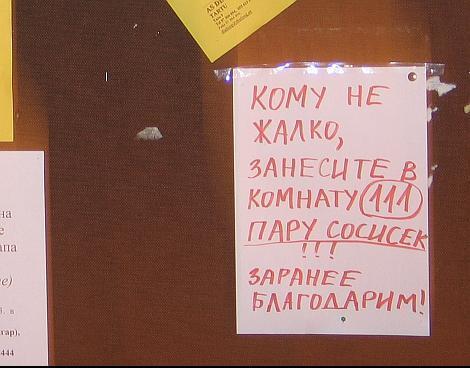 AS DE
TARTU
КОМУ НЕ
ЖАЛКО,
ЗАНЕСИТЕ В
КОМНАТУ 111
ПАРУ СОСИСЕК
!!!
ЗАРАНЕЕ
БЛАГОДАРИМ!
на
е
апа
е)
в
гар),
444